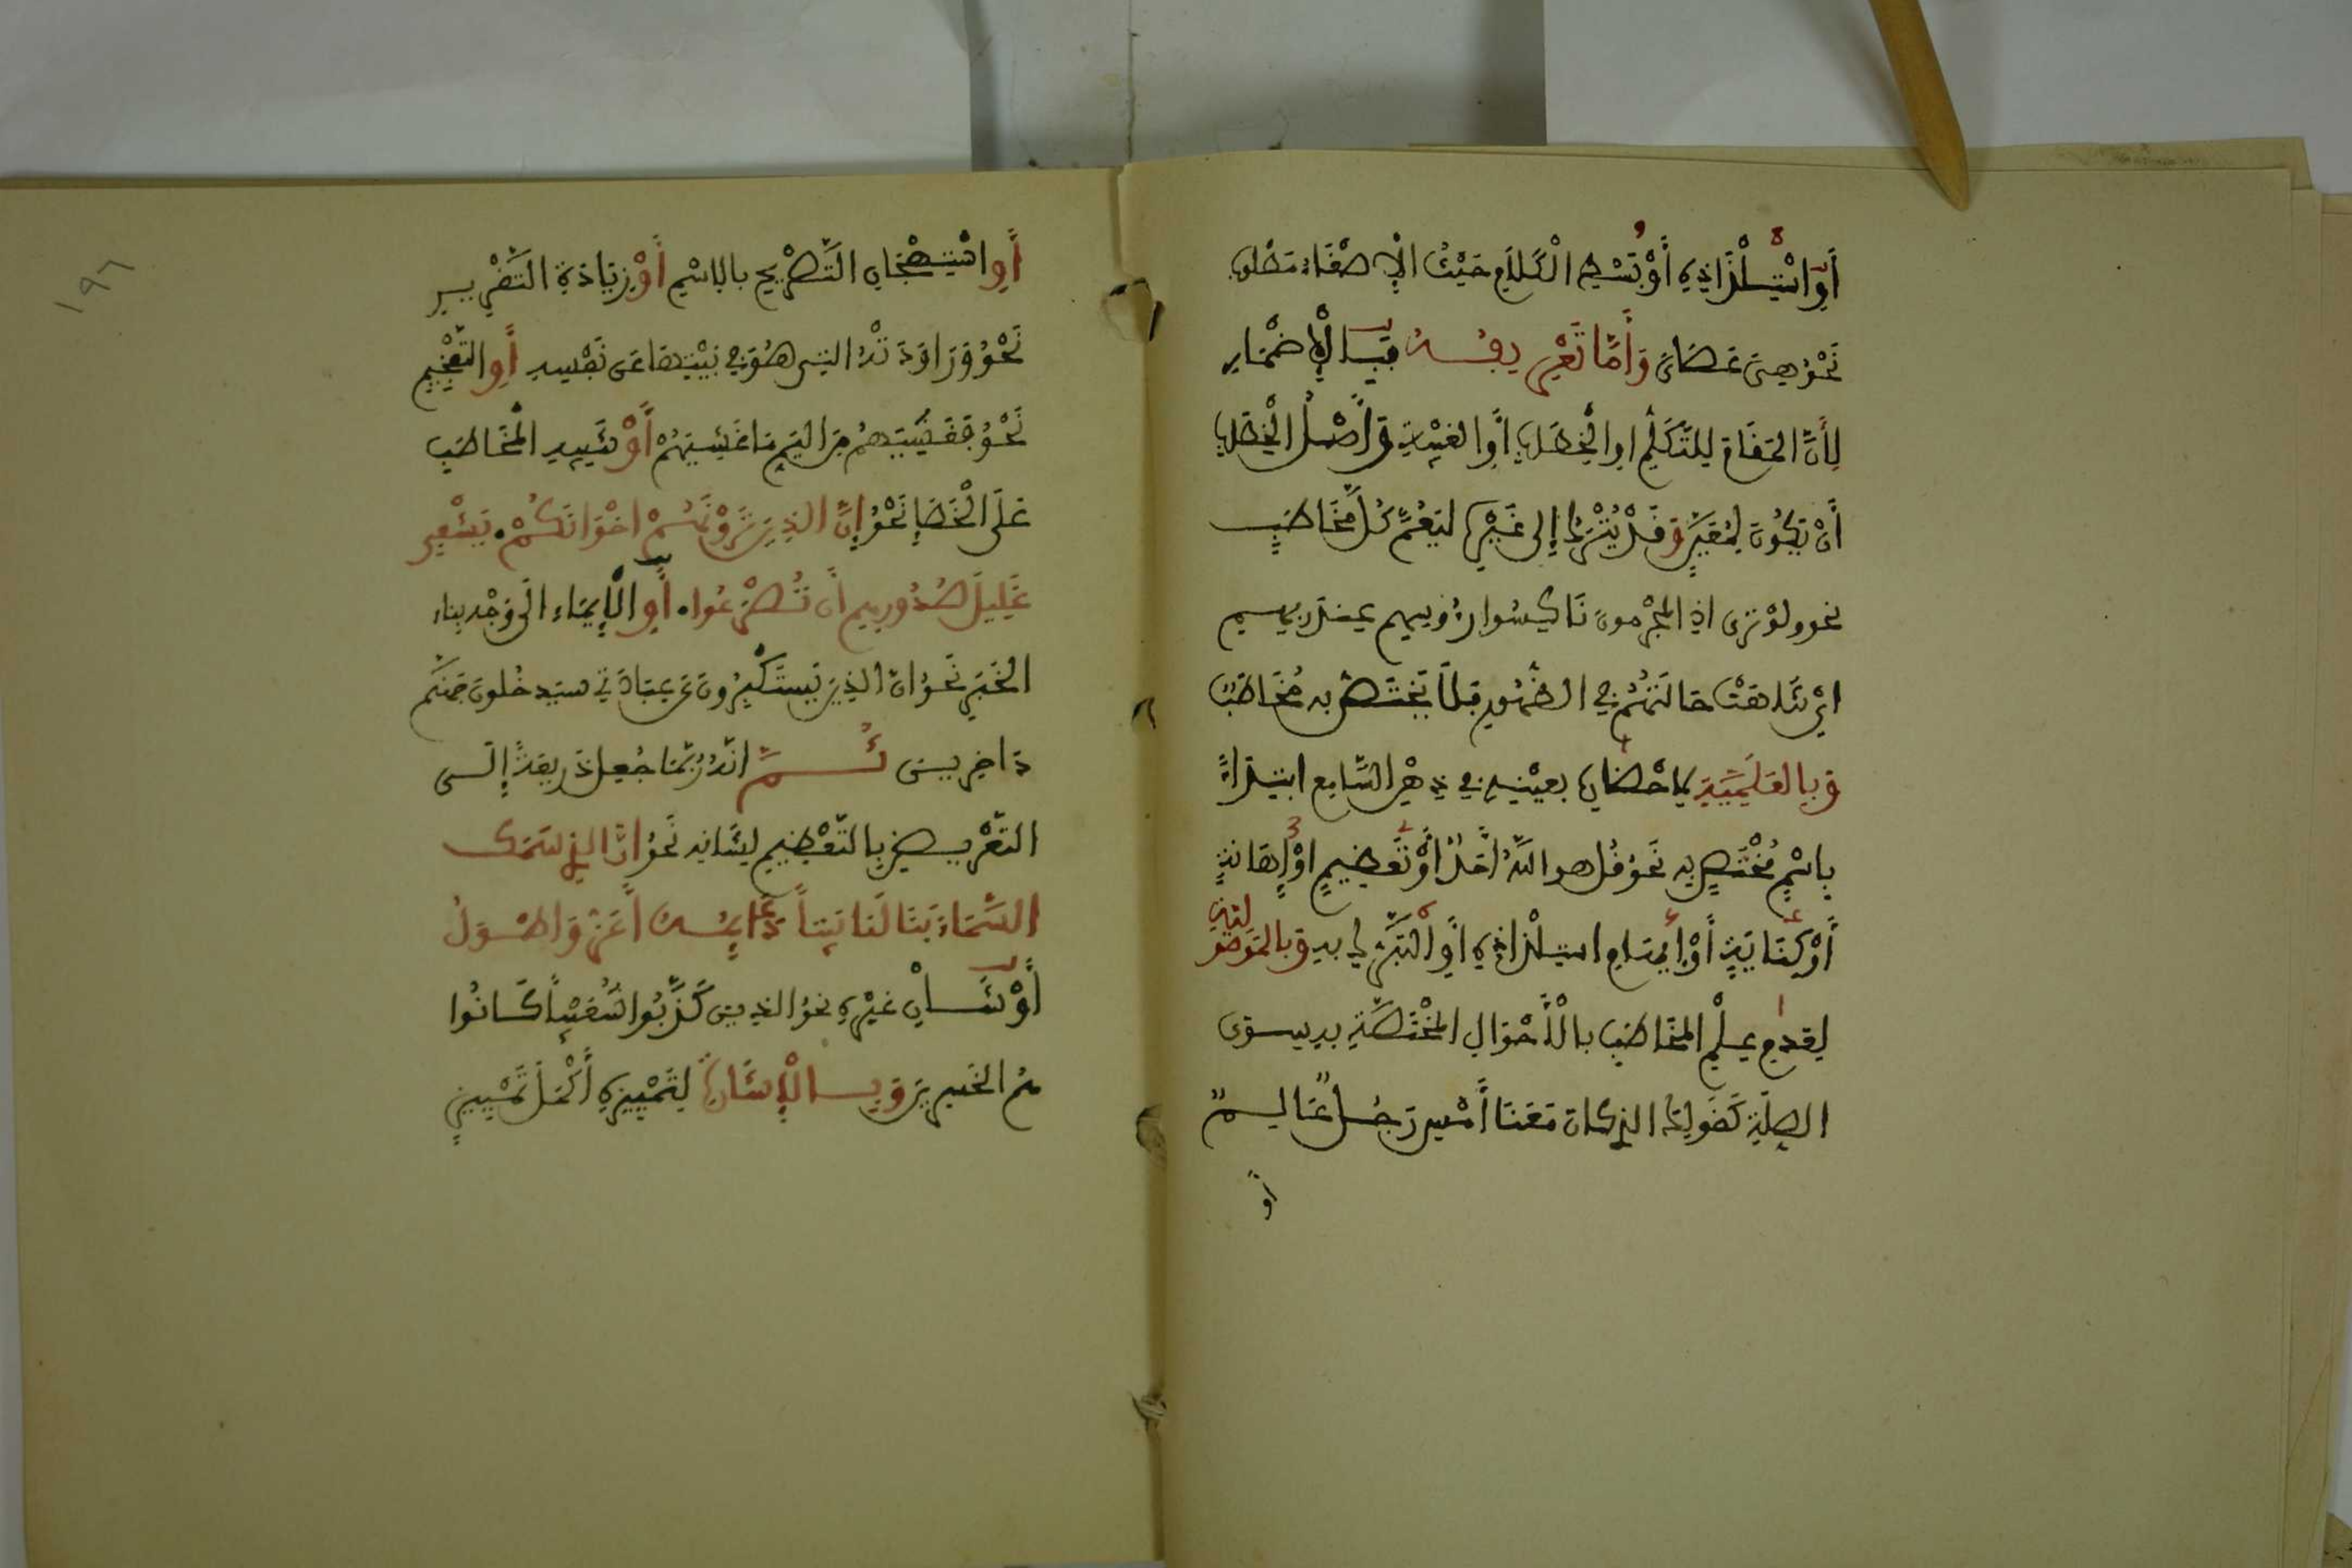 أَوِ اسْتِلْذَاذِهِ أَوْ بَسْطِ الْكَلَامِ حَيْثُ الْإِصْغَاءُ مَطْلُوبٌ
نَحْوُ هِيَ عَصَايَ وَأَمَّا تَعْرِيفُهُ فَبِالْإِضْمَارِ
لِأَنَّ الْمَقَامَ لِلتَّكَلُّمِ اوِ الْخِطَابِ أَوِ الْغَيْبَةِ وَأَصْلُ الْخِطَابِ
أَنْ يَكُونَ لِمُعَيَّنٍ وَقَدْ يُتْرَكُ إِلَى غَيْرِهِ لِيَعُمَّ كُلَّ مُخَاطَبٍ
نحو ولوْ ترى اذِ المجْرمونَ نَاكِسُوا رُءُوسِهِم عِندَ ربِّهِم
ايْ تَنَاهَتْ حَالَتُهُمْ فِي الظُّهُورِ فَلَا يَخْتَصُّ بِهِ مُخَاطَبٌ
وَبِالْعَلَمِيَّةِ لِإِحْضَارِهِ بِعَيْنِهِ فِي ذِهْنِ السَّامِعِ ابْتِدَاءً
بِاسْمٍ مُخْتَصٍّ بِهِ نَحْوُ قُل هو اللهُ أَحَدٌ أَوْ تَعْظِيمٍ أَوْ إِهَانَةٍ
أَوْ كِنَايَةٍ أَوْ إِيهَامِ اسْتِلْذَاذِهِ أَوِ التَّبَرُّكِ بِهِ وَبِالْمَوْصُولِيَّةِ
لِعَدَمِ عِلْمِ الْمُخَاطَبِ بِالْأَحْوَالِ الْمُخْتَصَّةِ بِهِ سِوَى
الصِّلَةِ كَقَوْلِكَ الذِي كَانَ مَعَنَا أَمْسِ رَجُلٌ عَالِمٌ
أو
١٩٦
أَوِ اسْتِهْجَانِ التَّصْرِيحِ بِالِاسْمِ أَوْ زِيَادَةِ التَّقْرِيرِ
نَحْوُ وَرَاوَدَتْهُ التِي هُوَ فِي بَيْتِهَا عَن نَّفْسِهِ أَوِ التَّفْخِيمِ
نَحْوُ فَغَشِيَهُمْ مِنَ الْيَمِّ مَا غَشِيَهُمْ أَوْ تَنْبِيهِ الْمُخَاطَبِ
عَلَى الْخَطَإِ نَحْوُ إِنَّ الذِينَ تَرَوْنَهُمْ اخْوَانَكُمْ يَشْفِي
غَلِيلَ صُدُورِهِم أَن تُصْرَعُوا أَوِ الْإِيمَاءِ الَى وَجْهِ بِنَاءِ
الْخَبَرِ نَحْوُ انَّ الذِينَ يَسْتَكْبِرُونَ عَن عِبَادَتِي سَيَدْخُلُونَ جَهَنَّمَ
دَاخِرِينَ ثُمَّ انَّهُ رُبَّمَا جُعِلَ ذَرِيعَةً إِلَى
التَّعْرِيضِ بِالتَّعْظِيمِ لِشَانِهِ نَحْوُ إِنَّ الذِي سَمَكَ
السَّمَاءَ بَنَا لَنَا بَيْتاً دَعَائِمُهُ أَعَزُّ وَاطْوَلُ
أَوْ شَانِ غَيْرِهِ نَحْوُ الذِينَ كَذَّبُوا شُعَيْباً كَانُوا
هُمُ الْخَسِرِينَ وَبِالْإِشَارَةِ لِتَمْيِيزِهِ أَكْمَلَ تَمْيِيزٍ